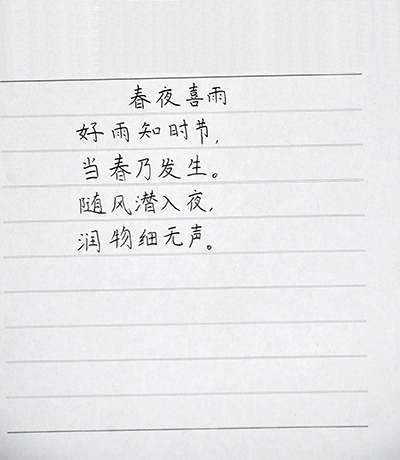 春夜喜雨
好雨知时节,
当春乃发生。
随风潜入夜,
润物细无声。